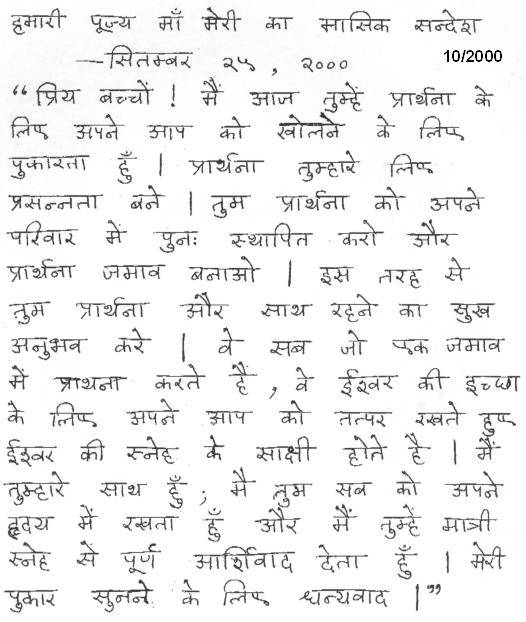 हमारी पूज्य माँ मेरी का मासिक सन्देश
—सितम्बर २५, २०००
10/2000
“प्रिय बच्चों ! मैं आज तुम्हें प्रार्थना के
लिए अपने आप को खोलने के लिए
पुकारता हुँ | प्रार्थना तुम्हारे लिए
प्रसन्नता बने | तुम प्रार्थना को अपने
परिवार में पुनः स्थापित करो और
प्रार्थना जमाव बनाओ | इस तरह से
तुम प्रार्थना और साथ रहने का सुख
अनुभव करे | वे सब जो एक जमाव
में प्राथना करते है, वे ईश्वर की इच्छा
के लिए अपने आप को तत्पर रखते हुए
ईश्वर की स्नेह के साक्षी होते है | मैं
तुम्हारे साथ हुँ; मै तुम सब को अपने
हृदय में रखता हुँ और मैं तुम्हें मात्री
स्नेह से पूर्ण आर्शिवाद देता हुँ | मेरी
पुकार सुनने के लिए धन्यवाद |”